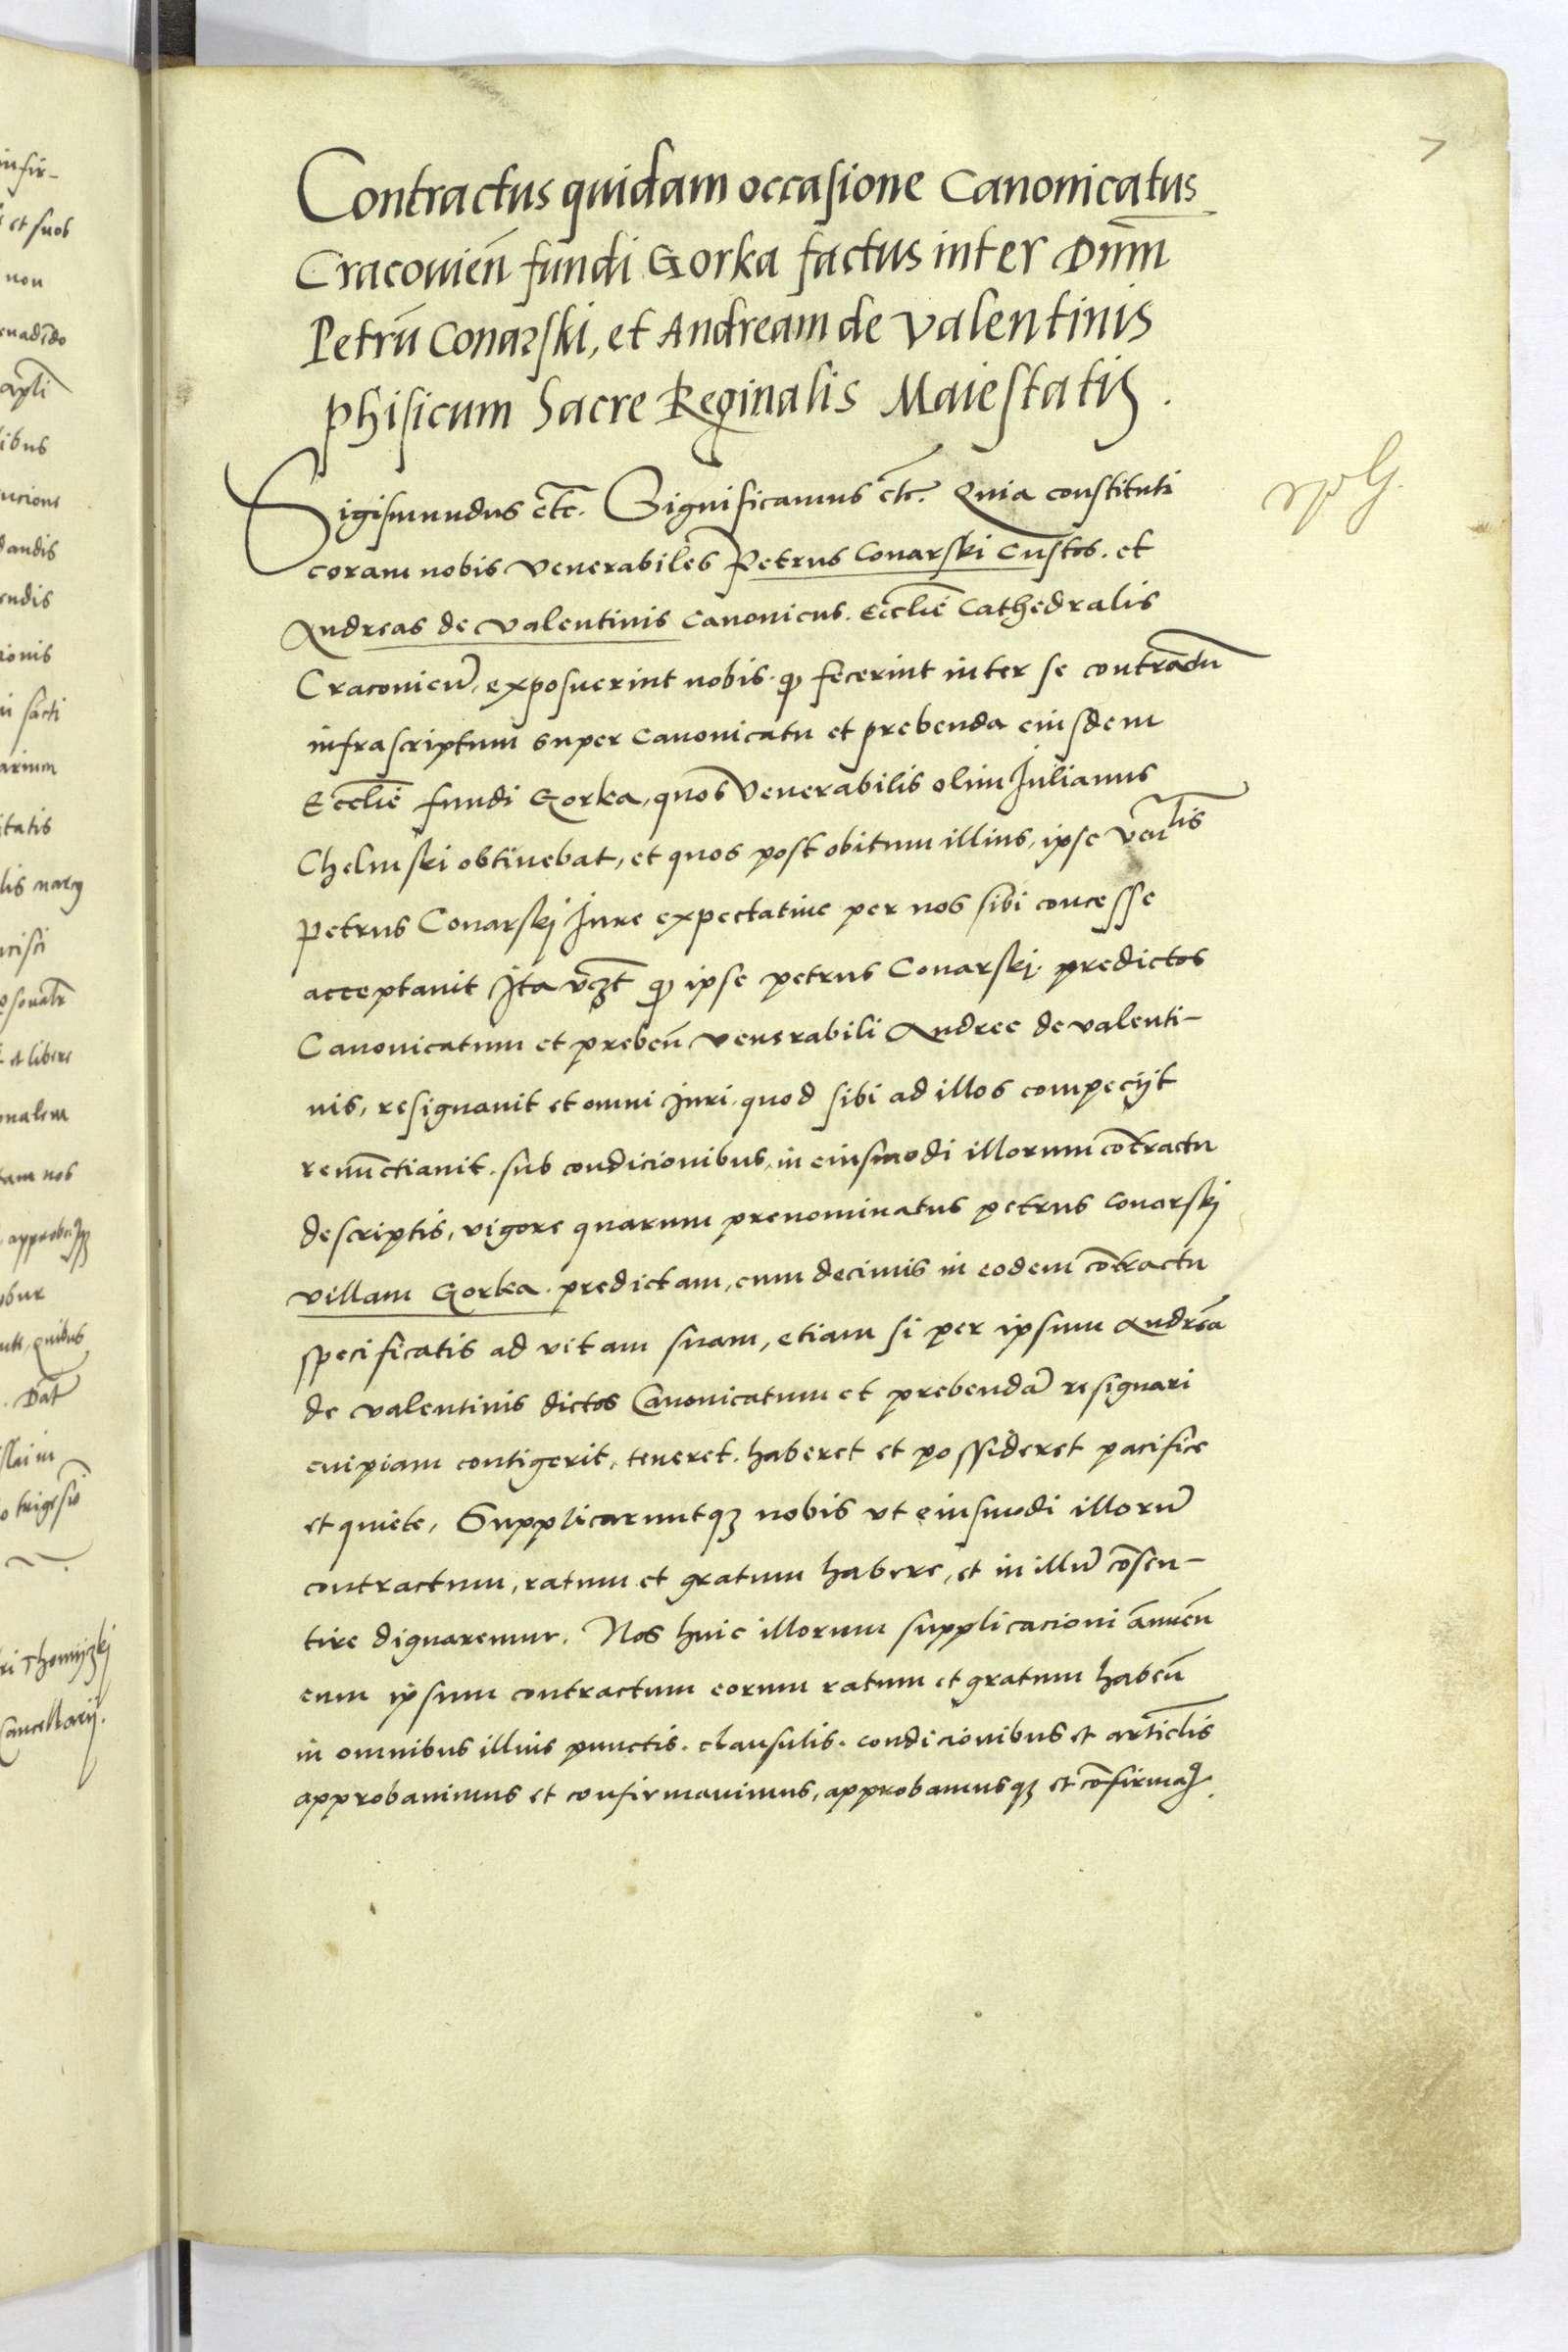 7
Contractus quidam occasione Canonicatus
Cracouien̄ fundi Gorka factus inter Dn̄m
Petrū Conarski, et Andream de Valentinis
phisicum Sacre Reginalis Maiestatis.
Sigismundus etc̄. Significamus etc̄. Quia constituti
coram nobis venerabiles Petrus Conarski Custos. et
Andreas de Valentinis Canonicus. Ecclīe Cathedralis
Cracovien̄, exposuerint nobis. qꝫ fecerint inter se contractū
infrascriptum super Canonicatu et prebenda eiusdem
Ecclīe fundi Gorka, quos Venerabilis olim Julianus
Chelmski obtinebat, et quos post obitum illius, ipse Ven̄lis
Petrus Conarskj Jure expectative per nos sibi concesse
acceptauit Jta vꝫt qꝫ ipse petrus Conarskj. predictos
Canonicatum et preben̄ venerabili Andree de valenti-
nis, resignauit et omni Juri. quod sibi ad illos compecijt
renūctiauit. sub condicionibus, in eiusmodi illorum cōtractu
descriptis, vigore quarum prenominatus petrus Conarskj
villam Gorka. predictam, cum decimis in eodem cōtractu
specificatis ad vitam suam, etiam si per ipsum Andreā
de valentinis dictos Canonicatum et prebendā resignari
cuipiam contigerit, teneret. haberet et possideret pacifice
et quiete, Supplicaruntqꝫ nobis vt eiusmodi illorū
contractum, ratum et gratum habere, et in illū cōsen-
tire dignaremur. Nos huic illorum supplicacioni ānuen̄
eum ipsum contractum eorum ratum et gratum haben̄
in omnibus illius punctis. clausulis. condicionibus et articlīs
approbauimus et confirmauimus, approbamusqꝫ et cōfirmaꝫ.